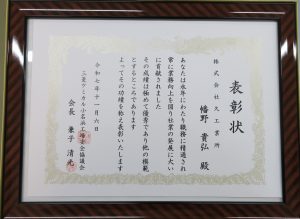 表彰状
株式会社久工業所
幡野 貴弘 殿
あなたは永年にわたり職務に精通され
常に業務向上を図り社業の発展に大い
に貢献されました
その成績は極めて優秀であり他の模範
とするところであります
よってその功績を称え表彰いたします
令和七年十一月六日
三菱ケミカル小名浜工場安全協議会
会長 兼子 清光